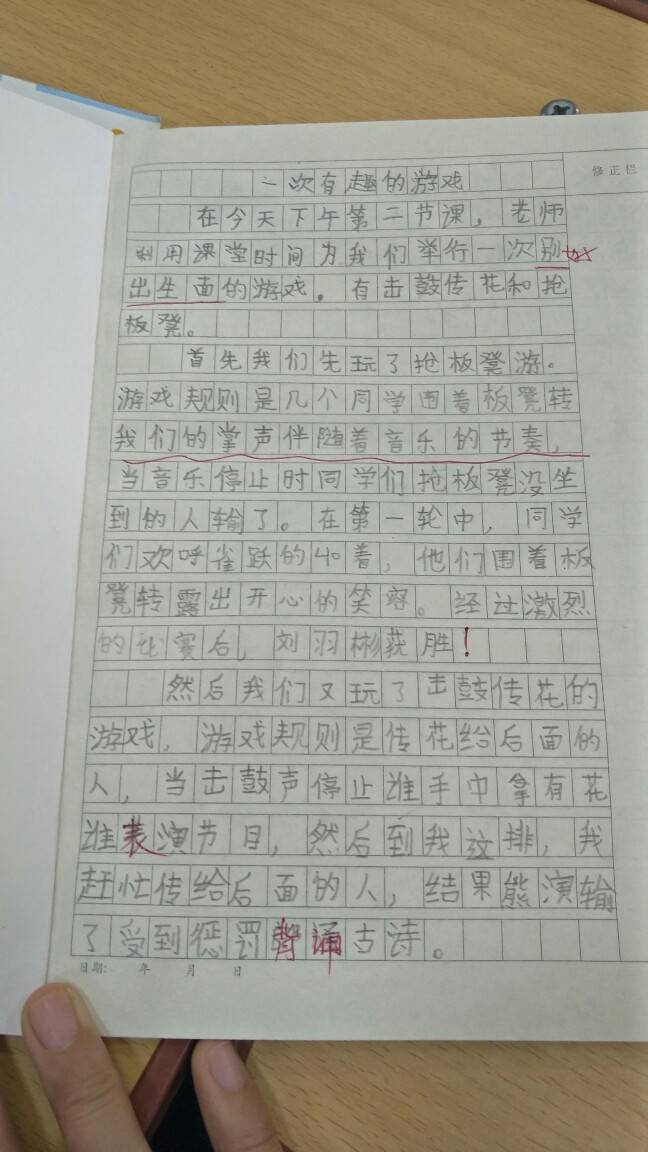 一次有趣的游戏
修正栏
在今天下午第二节课，老师
利用课堂时间为我们举行一次别
出生面的游戏。有击鼓传花和抢
板凳。
首先我们先玩了抢板凳游。
游戏规则是几个同学围着板凳转
我们的掌声伴随着音乐的节奏，
当音乐停止时同学们抢板凳没坐
到的人输了。在第一轮中，同学
们欢呼雀跃的叫着，他们围着板
凳转露出开心的笑容。经过激烈
的比赛后，刘羽彬获胜！
然后我们又玩了击鼓传花的
游戏，游戏规则是传花给后面的
人，当击鼓声停止谁手中拿有花
谁表演节目，然后到我这排，我
赶忙传给后面的人，结果熊演输
了受到惩罚背诵古诗。
日期： 年 月 日